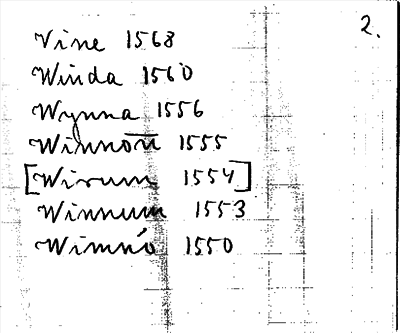 2.
Vine 1568
Winda 1560
Wynna 1556
Winnon̅ 1555
[Wirum 1554]
Winnum 1553
Wimnó 1550